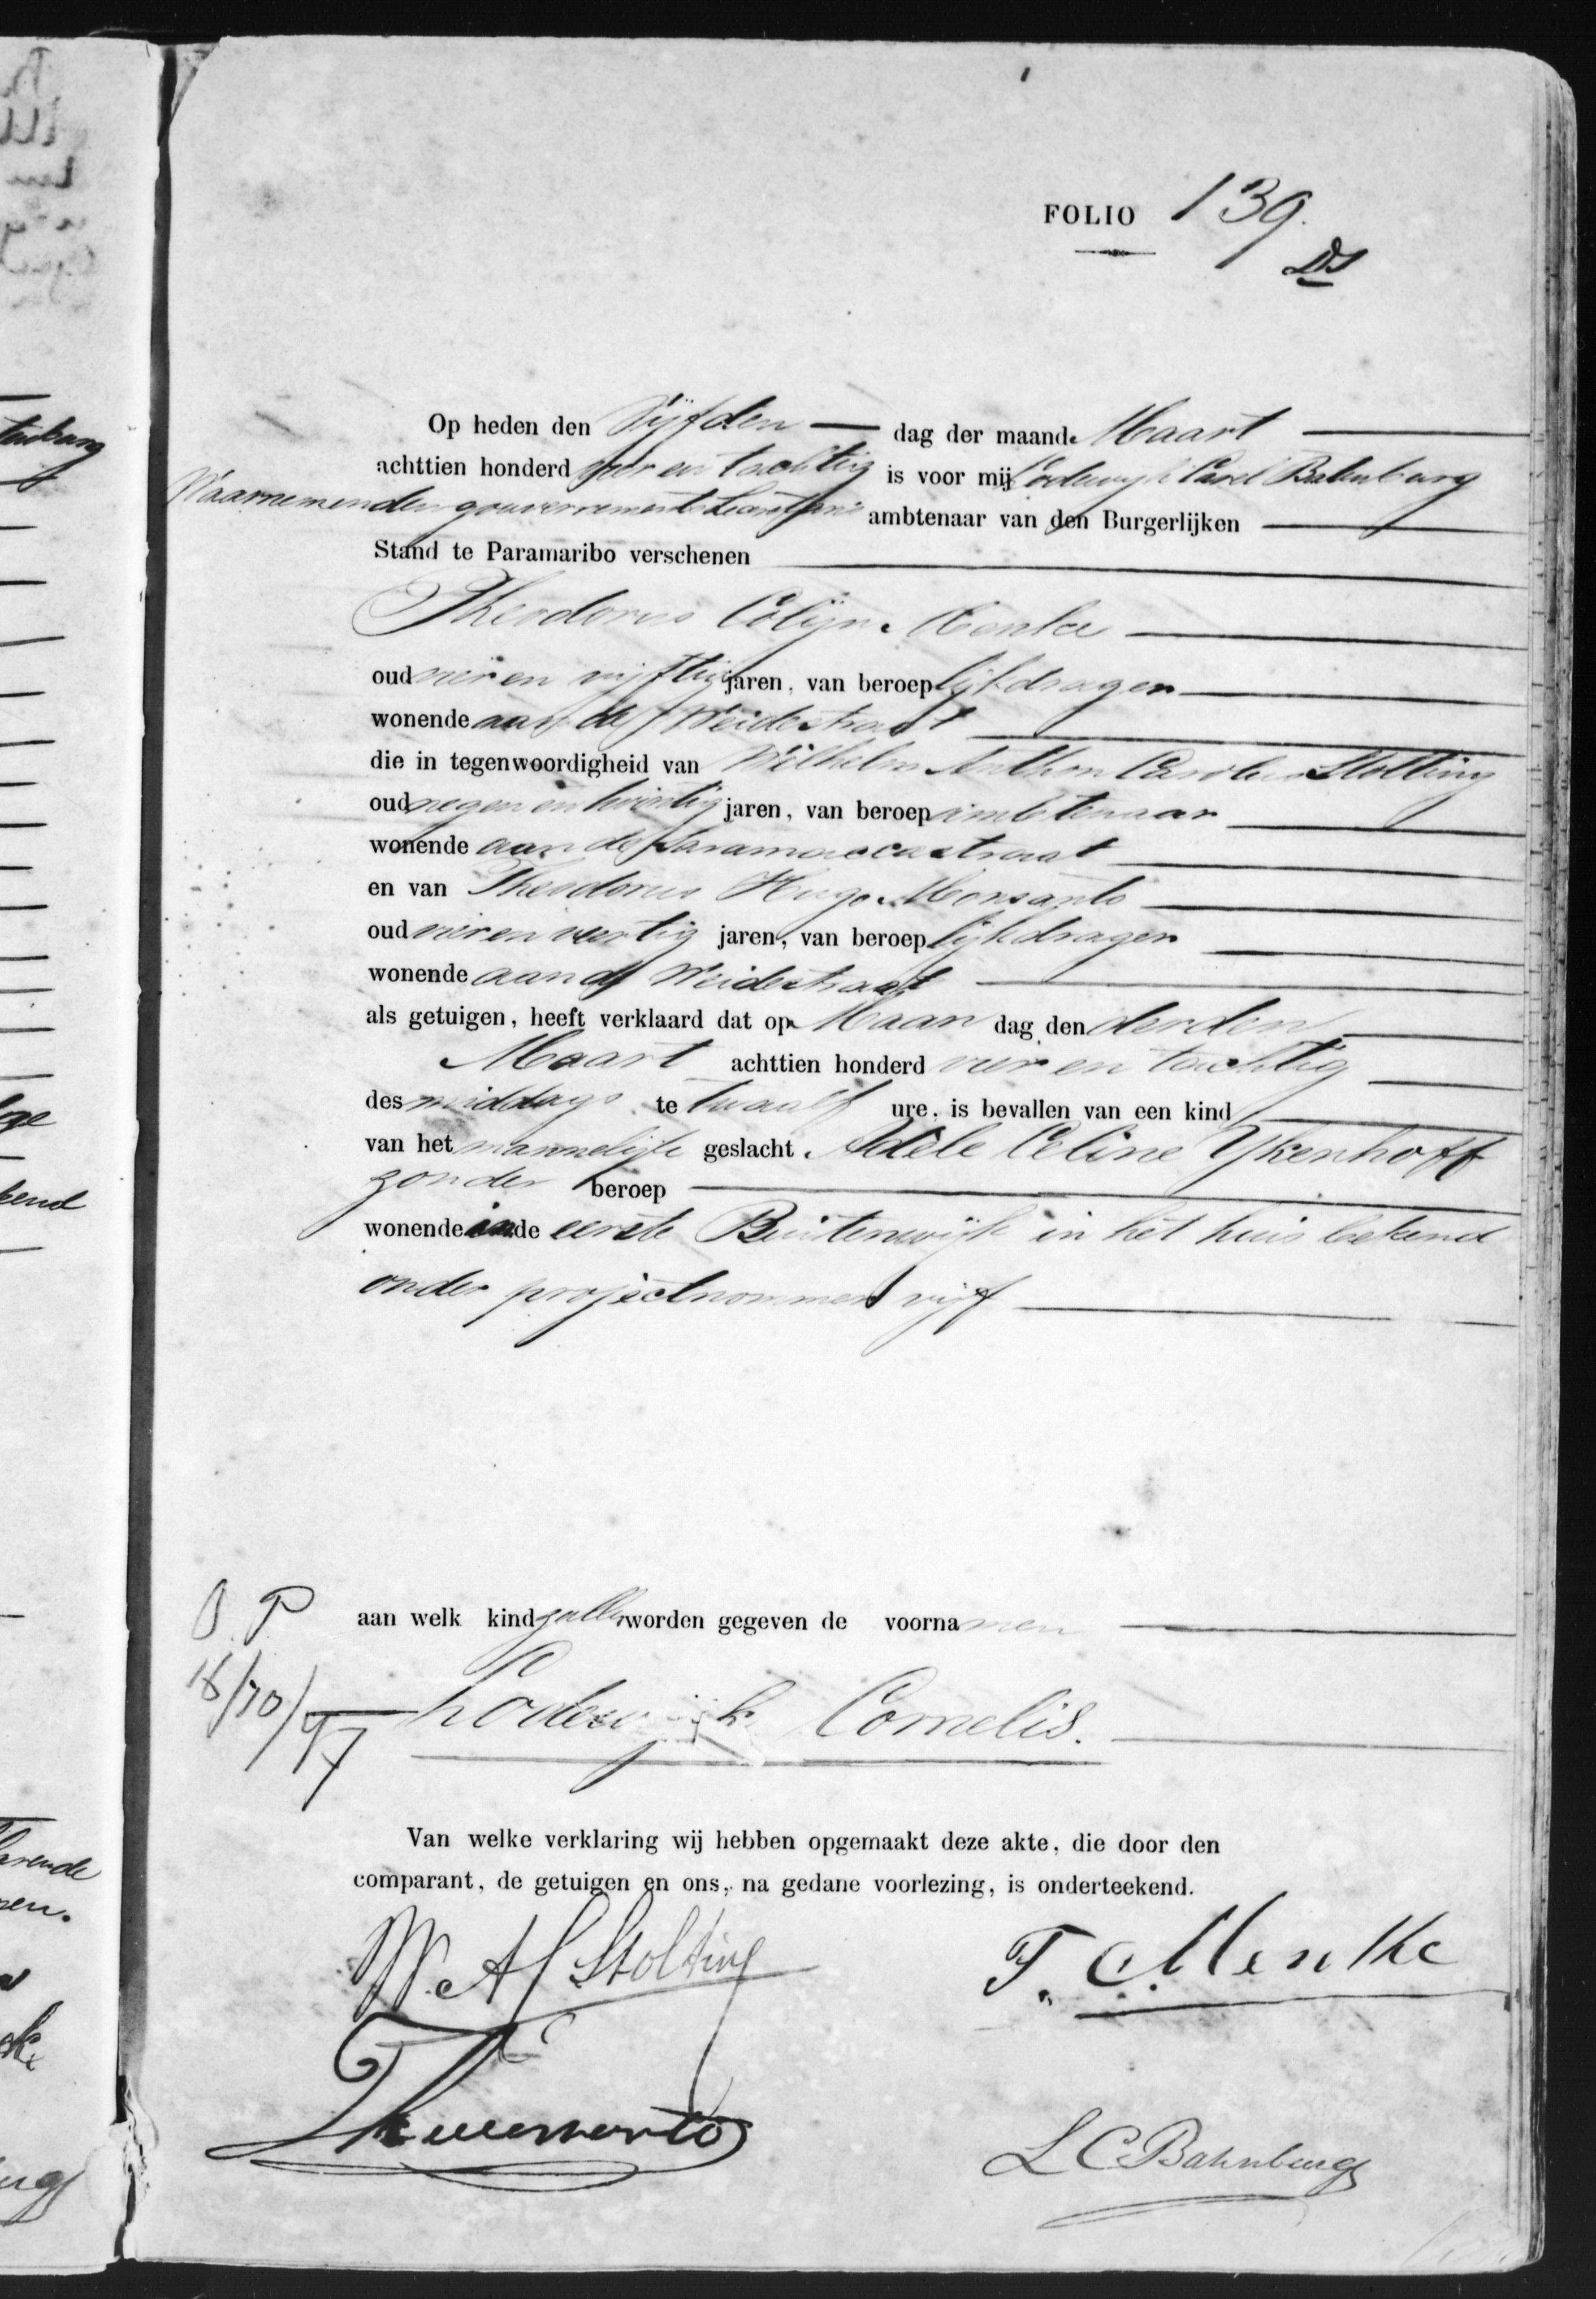 FOLIO 139.
Op heden den Vijfden dag der maand Maart
achttien honderd vier en tachtig is voor mij Lodewijk Carel Bahnburg
Waarnemenden gouvernements Secretaris ambtenaar van den Burgerlijken
Stand te Paramaribo verschenen
Theodorus Colijn Menke
oud vier en vijftig jaren, van beroep lijkdrager
wonende aan de Weidestraat
die in tegenwoordigheid van Wilhelm Anthon Carolus Stolting
oud negen en twintig jaren, van beroep ambtenaar
wonende aan de Saramaccastraat
en van Theodorus Hugo Monsanto
oud vier en veertig jaren, van beroep lijkdrager
wonende aan de Weidestraat
als getuigen, heeft verklaard dat op Maan dag den derden
Maart achttien honderd vier en tachtig
des middags te twaalf ure, is bevallen van een kind
van het mannelijk geslacht Adèle Celine Ykenhoff
zonder beroep
wonende in de eerste Buitenwijk in het huis bekend
onder projectnommer vijf
O. P aan welk kind zullen worden gegeven de voornamen
18/10/97 Lodewijk Cornelis.
Van welke verklaring wij hebben opgemaakt deze akte, die door den
comparant, de getuigen en ons, na gedane voorlezing, is onderteekend.
W. A C Stolting T. C Menke
Th Monsanto
L C Bahnburg